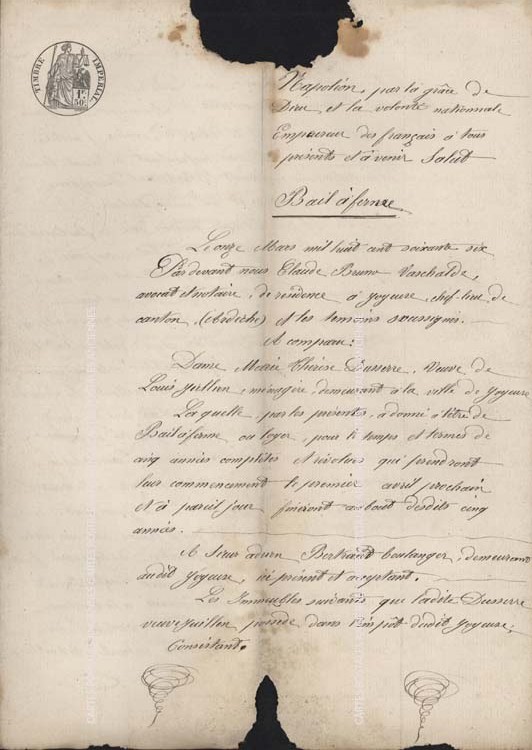 TIMBRE IMPERIAL
1F 50c
Napoléon, par la grâce de
Dieu et la volonté nationnale
Empereur des français à tous
présents et à venir Salut
Bail à ferme
Le onze Mars mil huit cent soixante six
Pardevant nous Claude Bruno Vaschalde,
avocat et notaire, de résidence à Joyeuse, chef-lieu de
canton, (Ardèche) et les témoins soussignés.
A comparu:
Dame Marie Thérèse Dusserre, Veuve de
Louis Juillen, ménagère, demeurant à la ville de Joyeuse
Laquelle, par les présentes, a donné à titre de
Bail à ferme ou loyer, pour le temps et termes de
cinq années complètes et révolues qui prendront
leur commencement le premier avril prochain
et à pareil jour finiront au bout desdits cinq
années.
A Sieur Bertrand boulanger, demeurant
audit Joyeuse, ici présent et acceptant.
Les Immeubles suivants que ladite Dusserre
veuve Juillen possède dans l'impôt dudit Joyeuse,
Consistant.